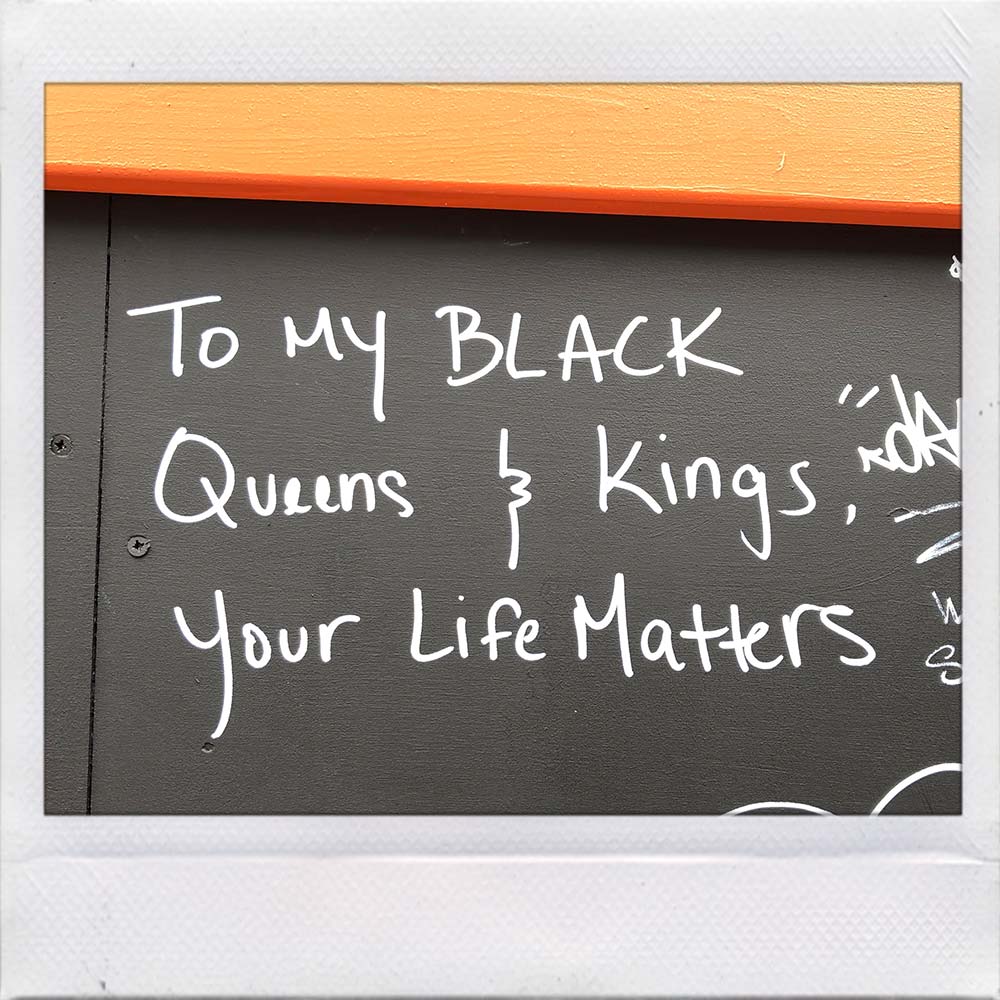 To MY BLACK
Queens & Kings,
Your Life Matters